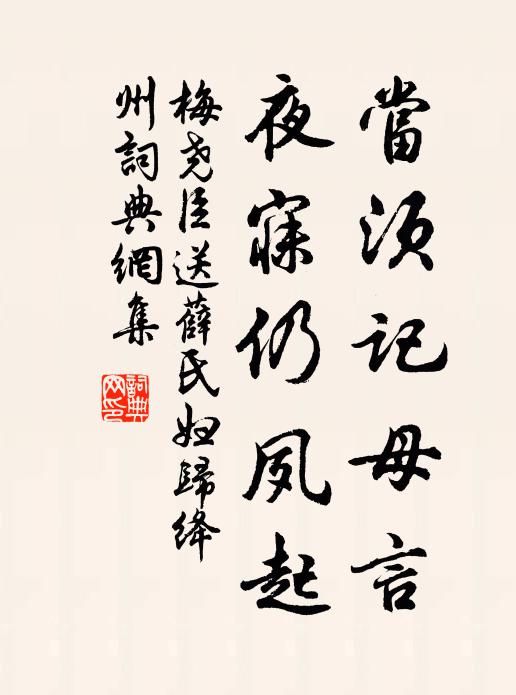 當須記母言
夜寐仍夙起
梅尧臣送薛氏妇歸绛
州詞典網集
詞典
网印